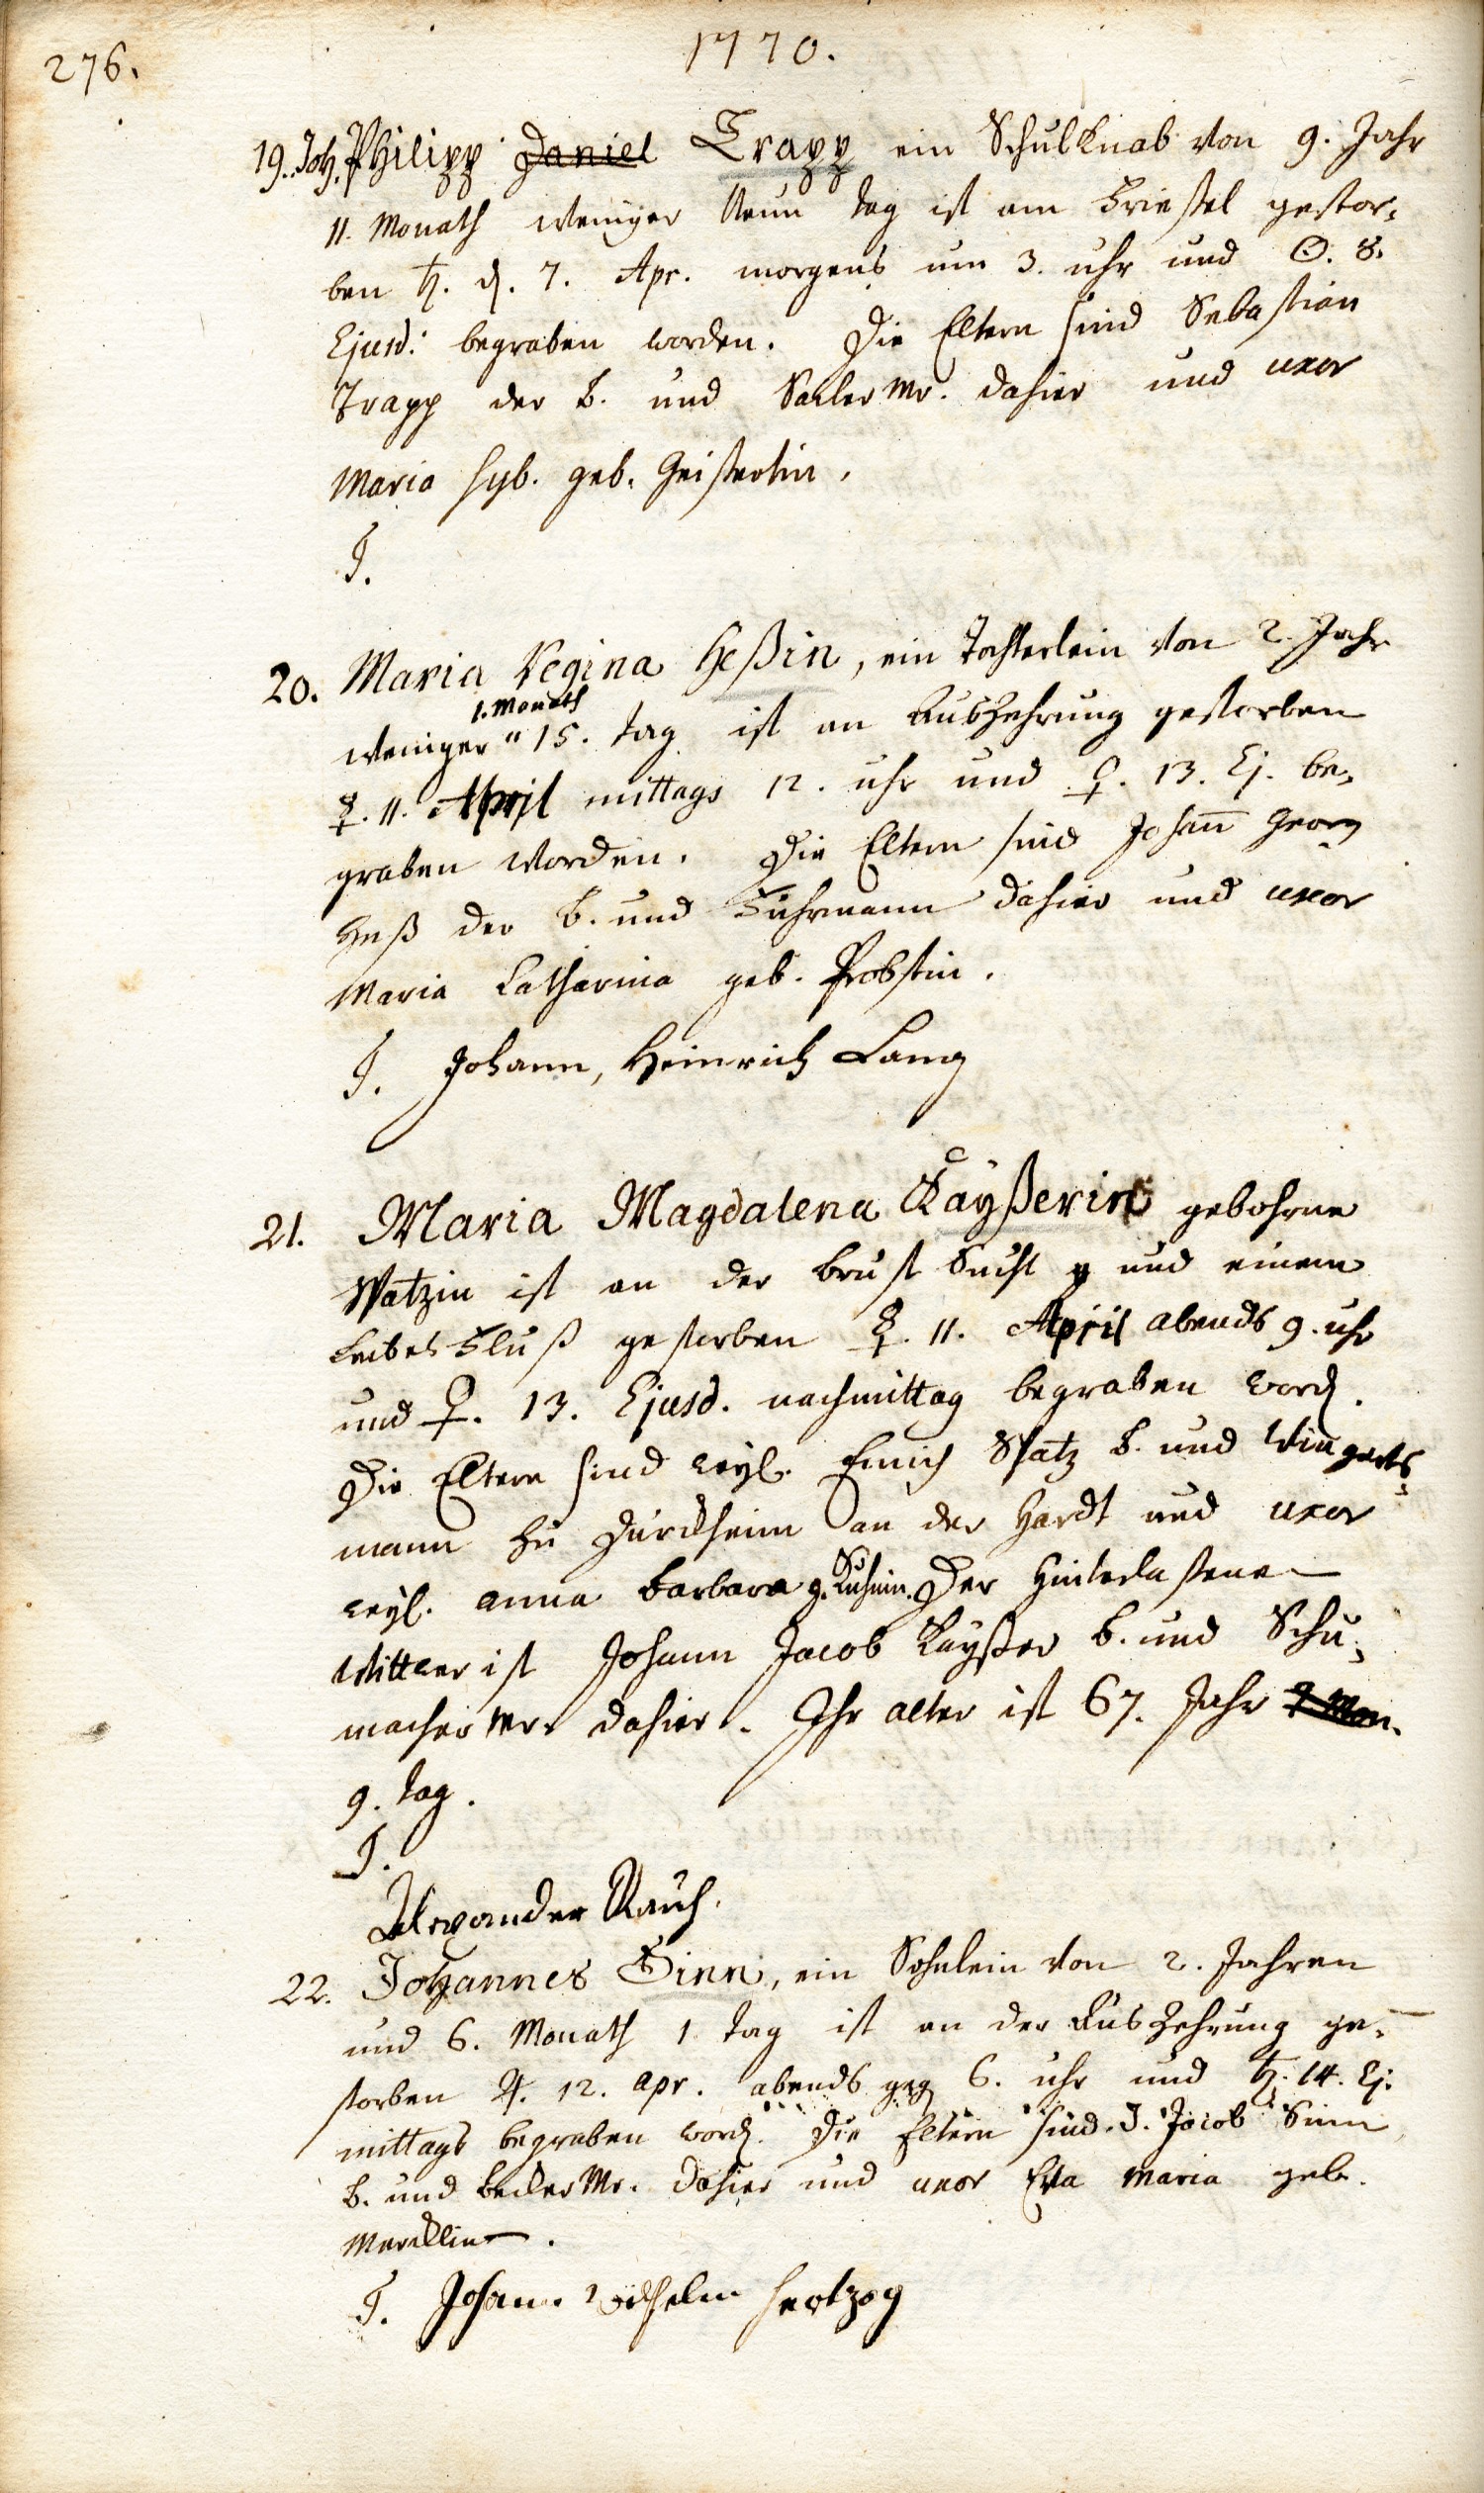 276.
1770.
19. Joh. Philipp Daniel Trapp ein Schulknab von 9. Jahr
11. Monath weniger Neun tag ist am Friessel gestor-
ben ♄. d. 7. Apr. morgens um 3. uhr und ☉. 8.
Ejusd: begraben worden. Die Eltern sind Sebastian
Trapp der B. und Sailer Mr. dahier und uxor
Maria Syb. geb. Geistertin.
T.
20. Maria Regina Heßin, ein Töchterlein von 2. Jahr
1. Monath
weniger " 15. tag ist an Auszehrung gestorben
☿. 11. April mittags 12. uhr und ♀. 13. Ej. be-
graben worden. Die Eltern sind Johan̄ Georg
Heß der B. und Fuhrmann dahier und uxor
Maria Catharina geb. Probstin.
T. Johann, Heinrich Lang
21. Maria Magdalena Kayßerin gebohrne
Spatzin ist an der Brust Sucht und einem
Leibes Fluß gestorben ☿. 11. April abends 9. uhr
und ♀. 13. Ejusd. nachmittag begraben word.
Die Eltern sind weyl. Emich Spatz B. und Wingerts-
mann zu Dürckheim an der Hardt und uxor
weyl. Anna Barbara g. Kuhnin. Der Hinterlassene
Wittwer ist Johann Jacob Kayßer B. und Schu-
macher Mr. dahier. Ihr alter ist 67. Jahr 9 Mon.
9. tag.
T.
Alexander Rauch.
22. Johannes Sinn, ein Söhnlein von 2. Jahren
und 6. Monath 1 tag ist an der Auszehrung ge-
storben ♃. 12. Apr. abends geg 6. uhr und ♄. 14. Ej.
mittags begraben word. Die Eltern sind J. Jacob Sinn
B. und Becker Mr. dahier und uxor Eva Maria geb.
Mercklin.
T. Johan. Wilhelm Hertzog